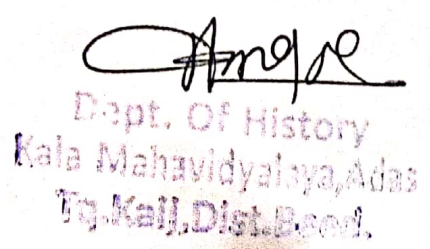 Dept. Of History
Kala Mahavidyalaya,Adas
Tq.Kaij,Dist.Beed.